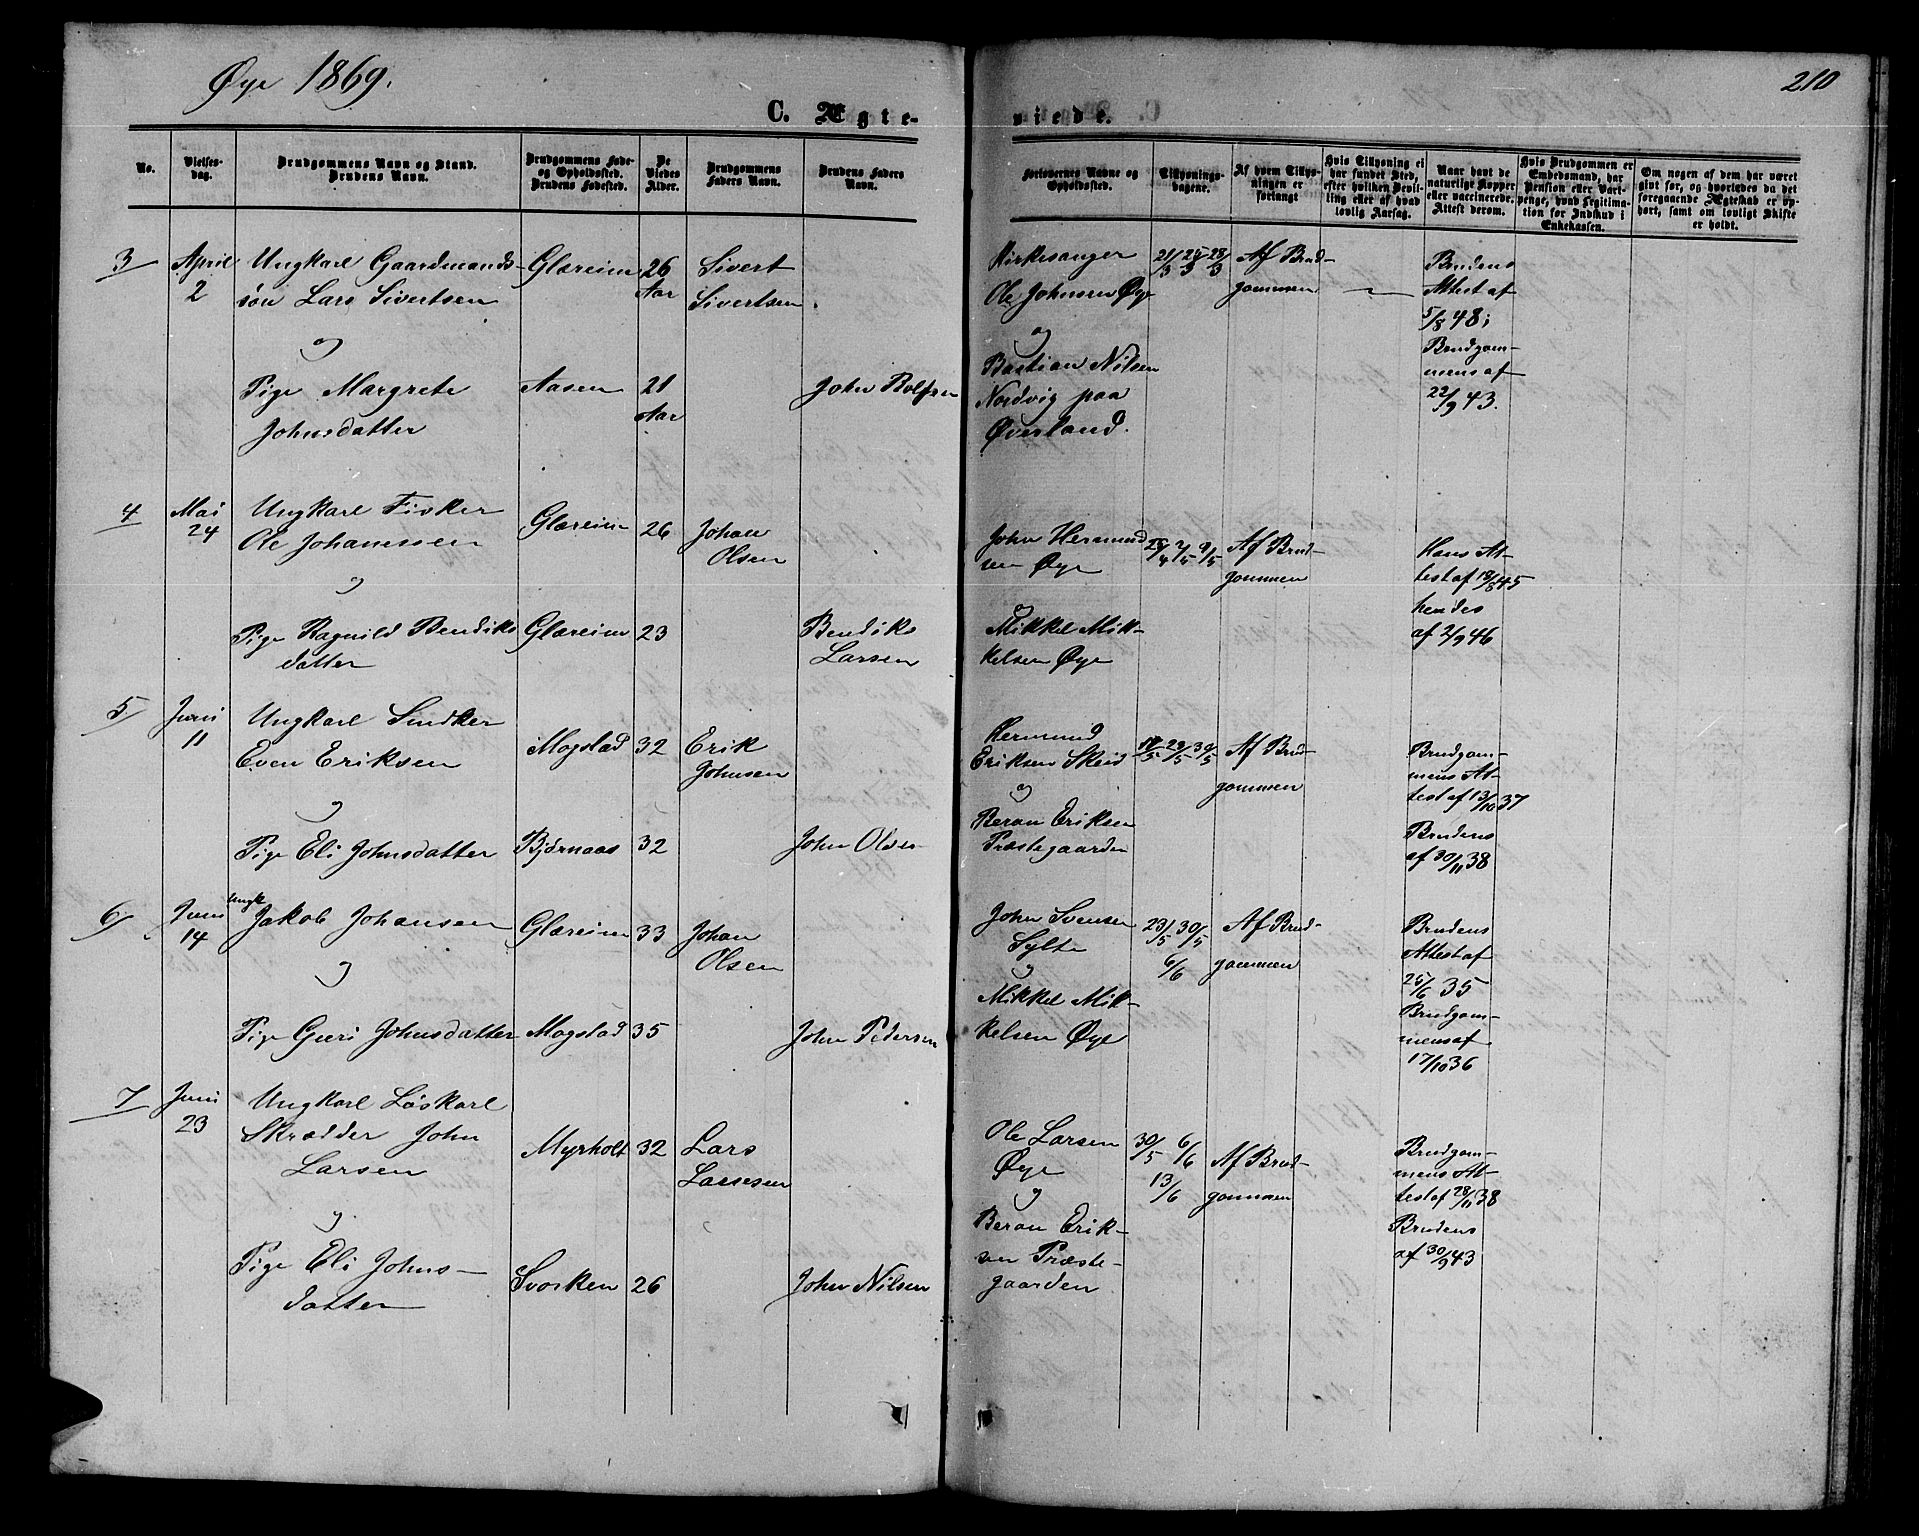 Øye 1869.
210
C. Ægte-
viede.
No.
Vielses-
dag.
Brudgommens Navn og Stand.
Brudens Navn.
Brudgommens Føde-
og Opholdssted.
Brudens Fødested.
De
Viedes
Alder.
Brudgommens
Faders Navn.
Brudens Faders
Navn.
Forlovernes Navne og
Opholdssted.
Tillysnings-
dagene.
Af hvem Tillys-
ningen er
forlangt
Hvis Tillysning ei
har fundet Sted,
efter hvilken Bevil-
ling eller af hvad
lovlig Aarsag.
Naar havt de
naturlige Kopper
eller vaccinerede.
Attest derom.
Hvis Brudgommen er
Embedsmand, har
Pension eller Vart-
penge, hvad Legitima-
tion for Indskud i
Enkekassen.
Om nogen af dem har været
gift før, og hvorledes da det
foregaaende Ægteskab er op-
hørt, samt om lovligt Skifte
er holdt.
3
April
2
Ungkarl Gaardmands-
søn Lars Sivertsen
og
Pige Margrete
Johnsdatter
Glæreim
Aasen
26
Aar
21
Aar
Sivert
Sivertsen
John Rolfsen
Kirkesanger
Ole Johnsen Øye
og
Bastian Nilsen
Nordvig paa
Øverland.
21/3 25/3 28/3
Af Brud-
gommen
Brudens
Attest af
5/8 48;
Brudgom-
mens af
22/9 43.
4
Mai
24
Ungkarl Fisker
Ole Johanssen
og
Pige Ragnild Bendiks
datter
Glæreim
Glæreim
26
23
Johan
Olsen
Bendiks
Larsen
John Hermund
sen Øye
og
Mikkel Mik-
kelsen Øye
25/4 2/5 9/5
Af Brud-
gommen
Hans At-
test af 18/8 45
hendes
af 2/9 46
5
Juni
11
Ungkarl Smdker
Even Eriksen
og
Pige Eli Johnsdatter
Mogstad
Bjørnaas
32
32
Erik
Johnsen
John Olsen
Hermund
Eriksen Skeid
og
Beran Eriksen
Præstegaarden
17/5 23/5 30/5
Af Brud-
gommen
Brudgom-
mens At-
test af 13/10 37
Brudens
af 30/11 38
6
Juni
14
Ungk
Jakob Johansen
og
Pige Guri Johnsdatter
Glæreim
Mogstad
33
35
Johan
Olsen
John Pedersen
John Svensen
Sylte
og
Mikkel Mik-
kelsen Øye
23/5 30/5
6/6
Af Brud-
gommen
Brudens
Attest af
25/6 35
Brudgom-
mens af
17/10 36
7
Juni
23
Ungkarl Løskarl
Skrædder John
Larsen
og
Pige Eli Johns-
datter
Myrholt
Svorken
32
26
Lars
Larsesen
John Nilsen
Ole Larsen
Øye
og
Beran Erik-
sen Præste-
gaarden
30/5 6/6
13/6
Af Brud-
gommen
Brudgom-
mens At-
test af 28/11 38
Brudens
af 30/9 43